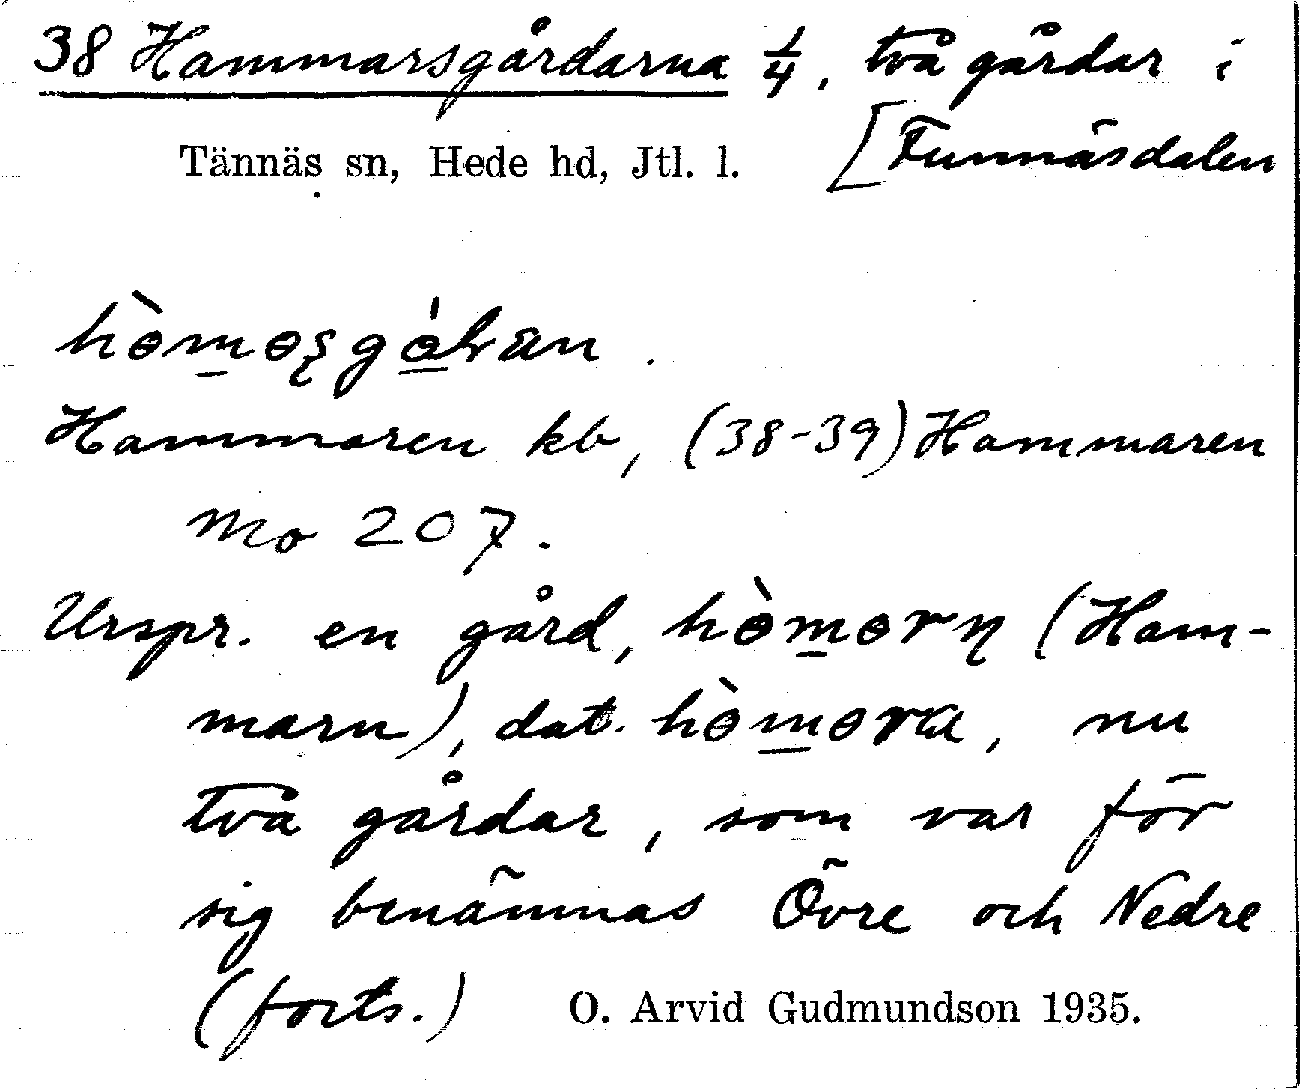 38 Hammarsgårdarna 1/4, två gårdar i
[Funnäsdalen
Tännäs sn, Hede hd, Jtl. l.
Hammaren kb, (38-39) Hammaren
Mo 207.
Urspr. en gård, hòmorn (Ham-
marn), dat. hòmora, nu
två gårdar, som var för
sig benämnas Övre och Nedre
(forts.) O. Arvid Gudmundson 1935.